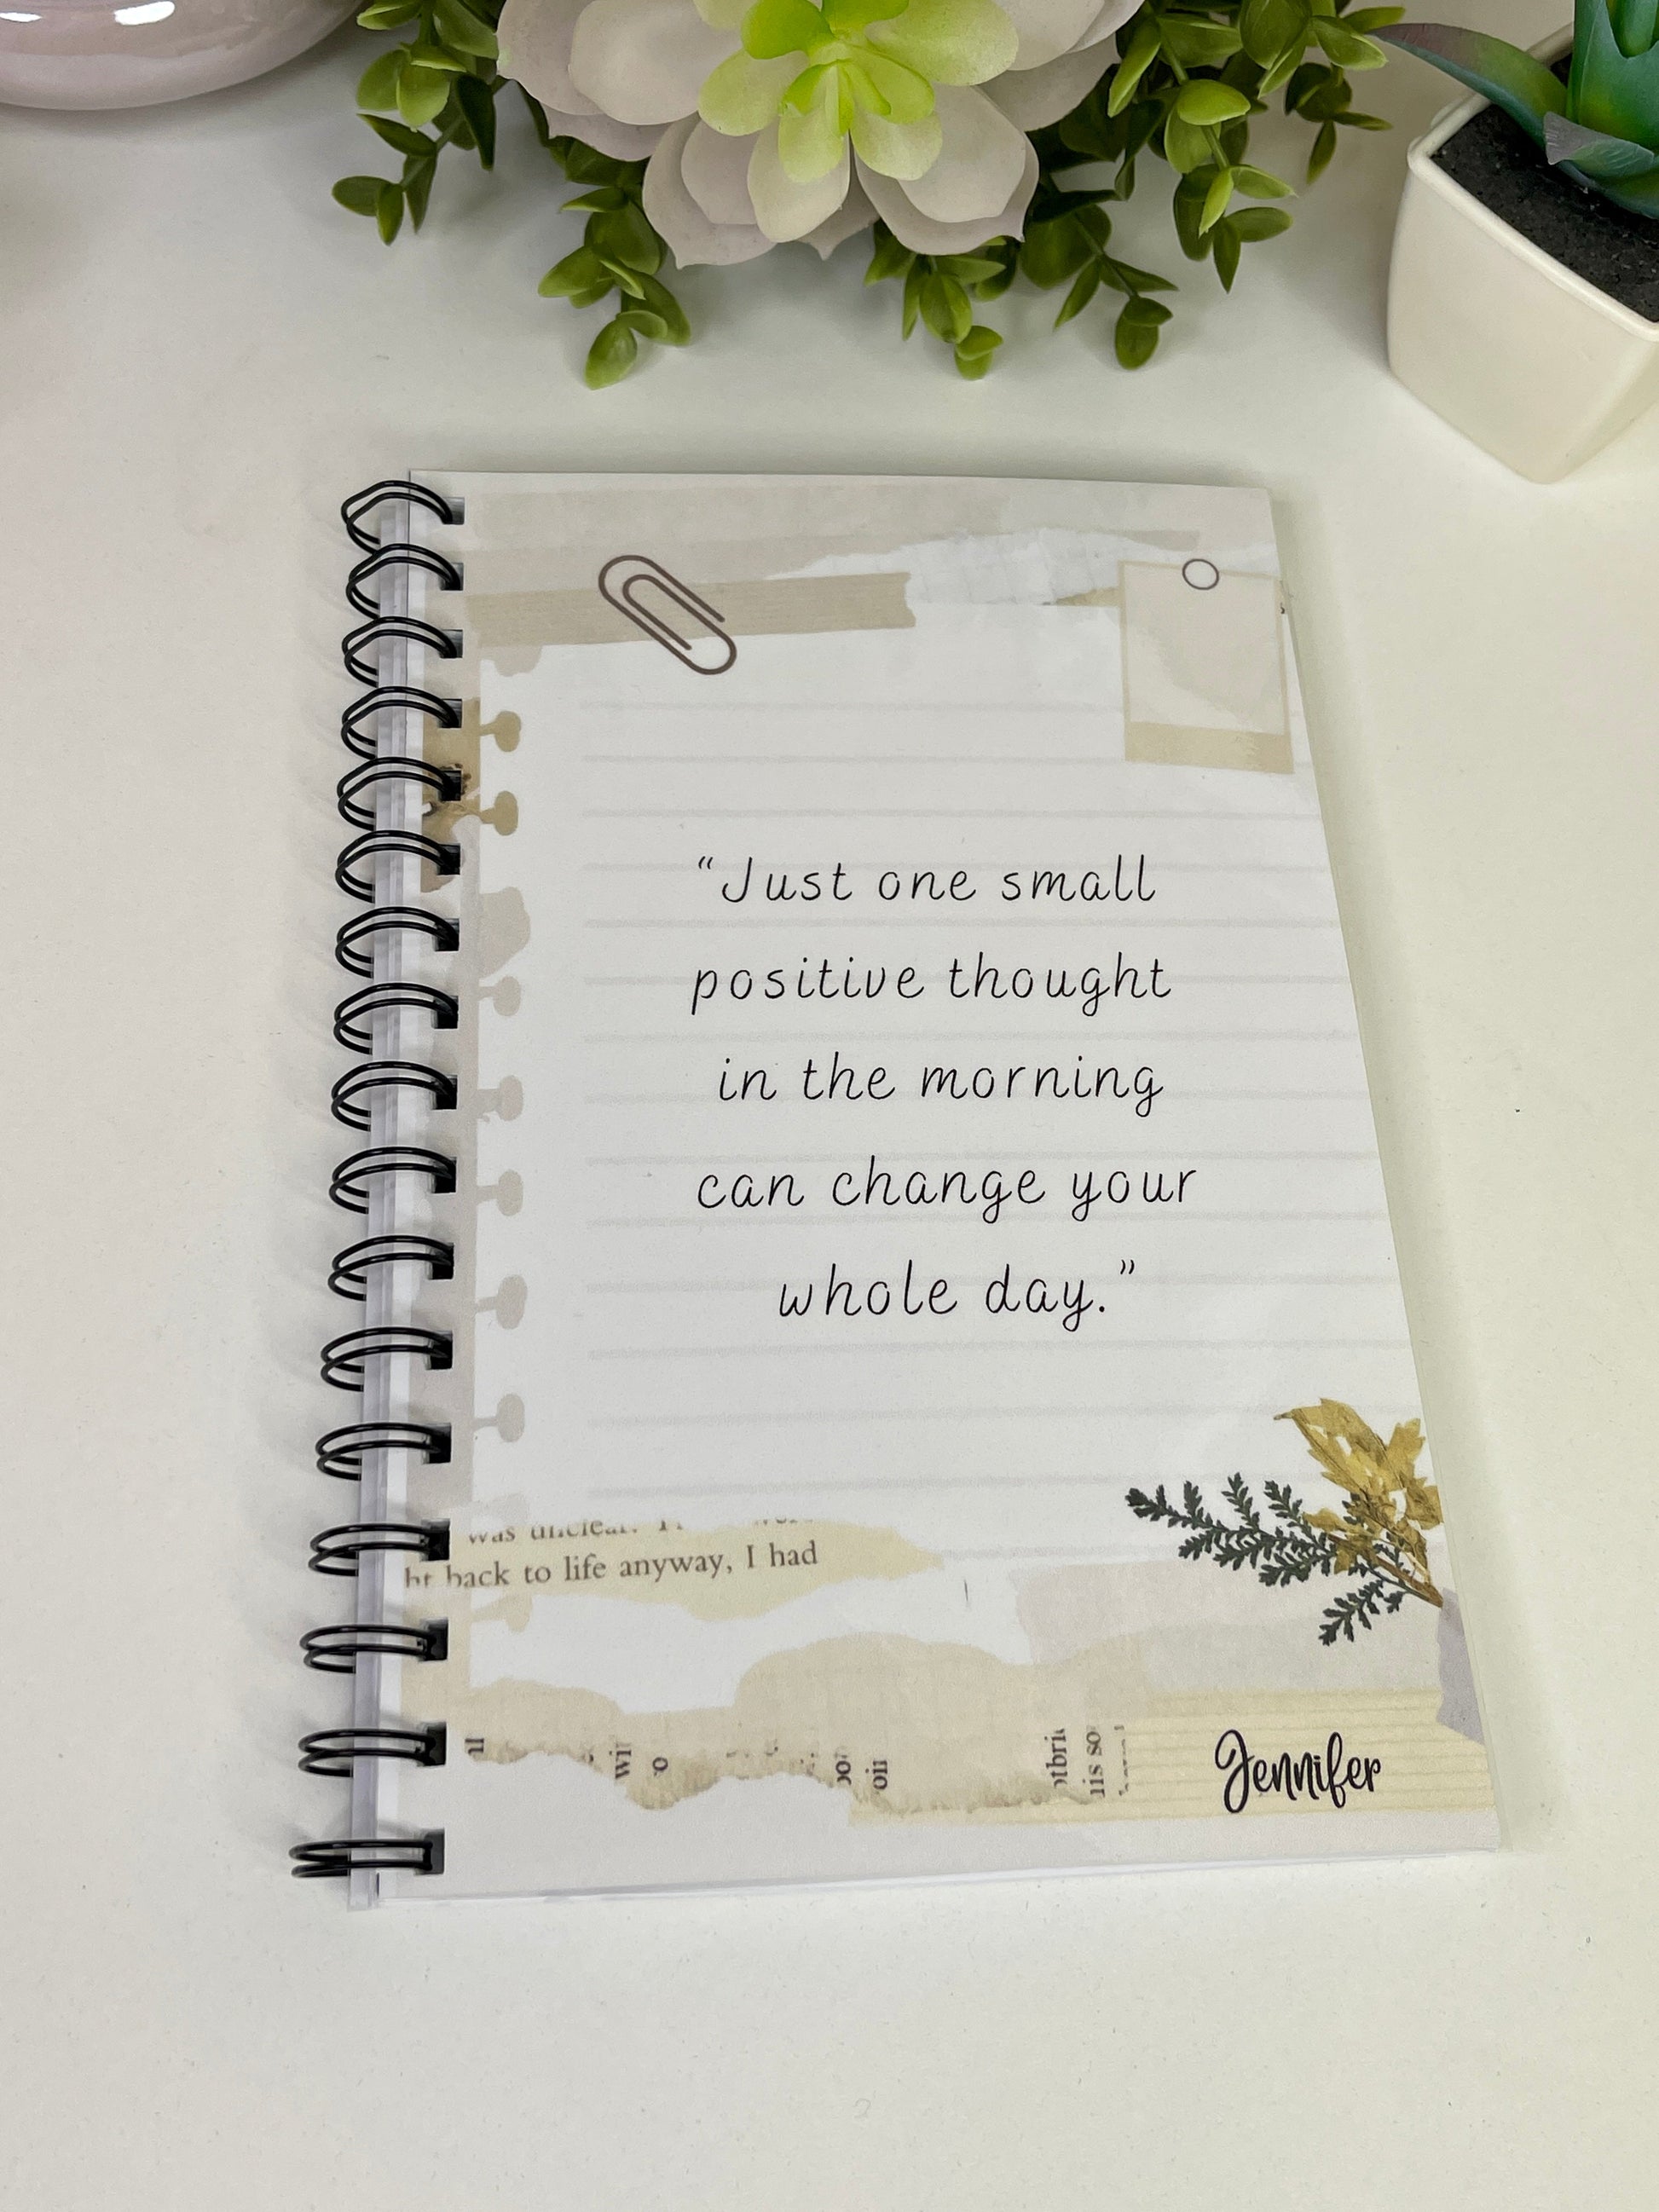 “Just one small
positive thought
in the morning
can change your
whole day.”
was unclear.
back to life anyway, I had
wit
Jennifer